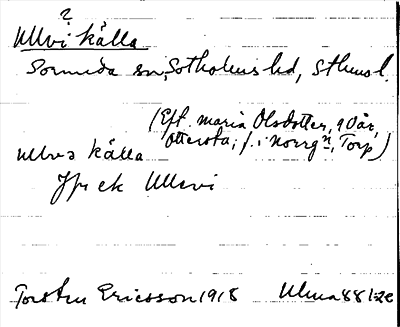 ?
Ullvi källa
Sorunda sn, Sotholms hd, Sthms l.
(Eft. Maria Olsdotter, 90 år,
Ottersta, f. i Norrgn, Torp)
ullvs källa
Jfr ek Ullvi
Torsten Ericsson 1918 Ulma 88:1-2c